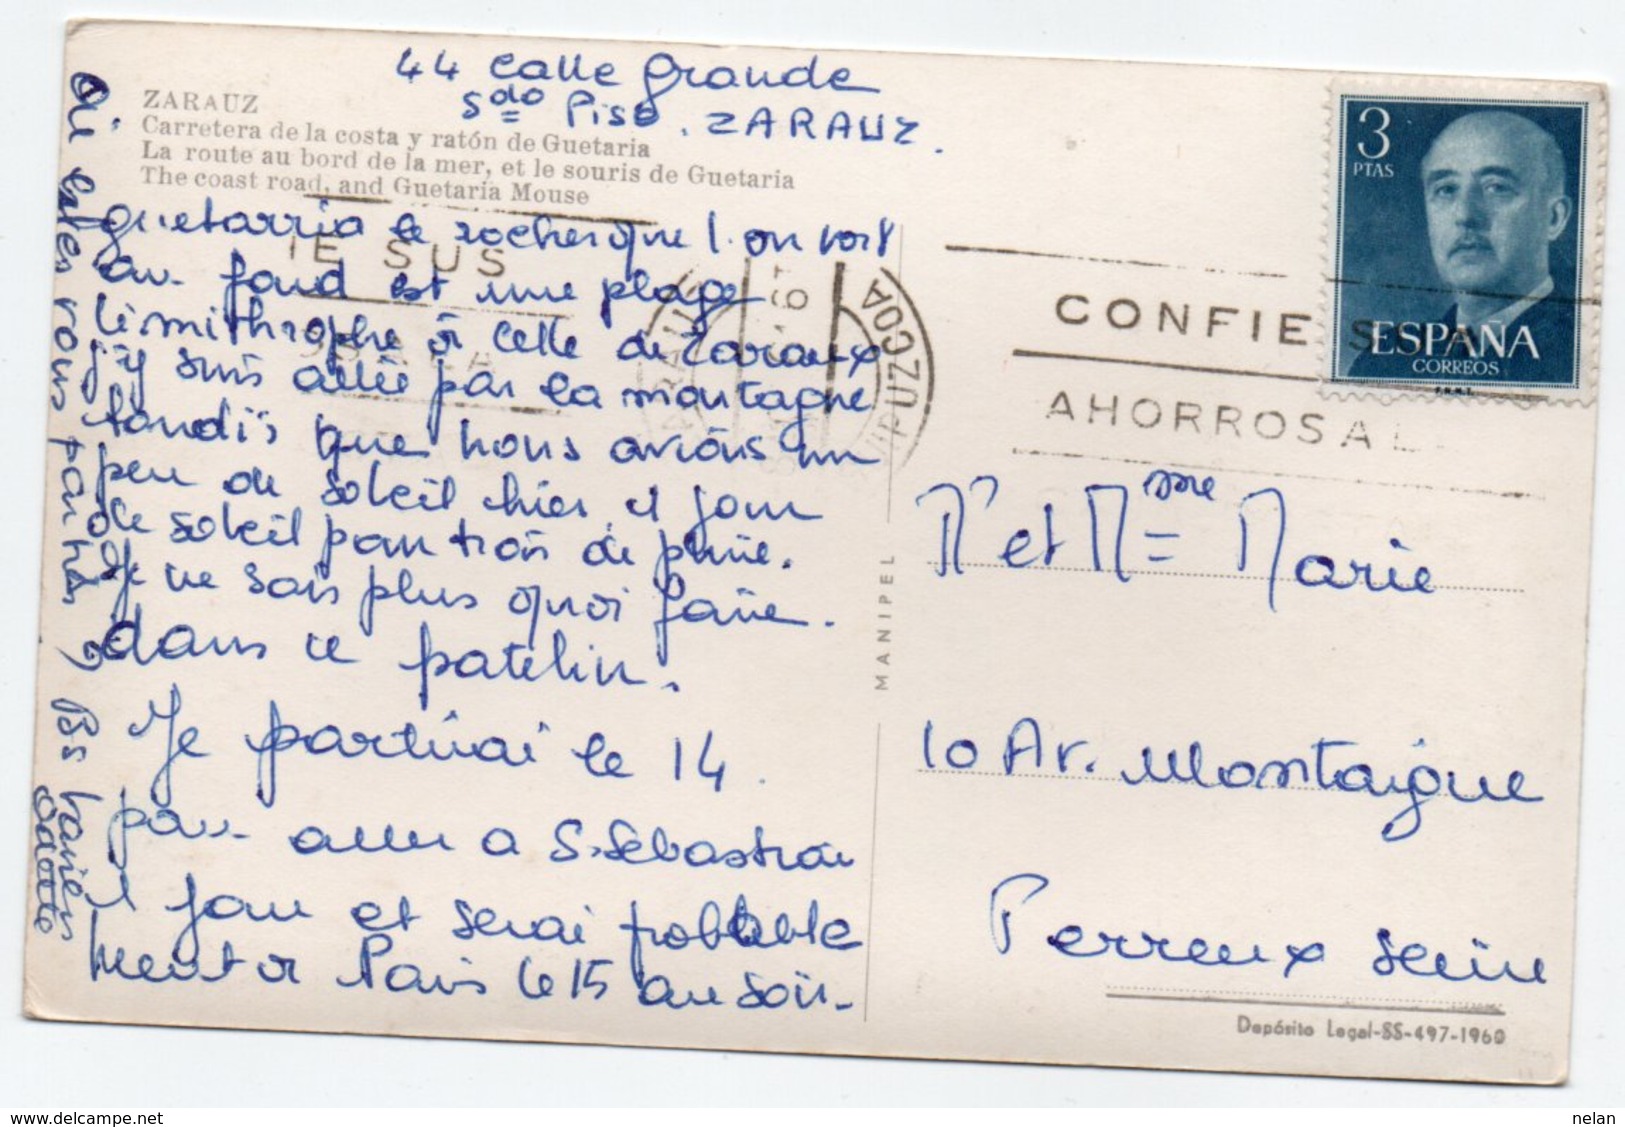 44 Calle Grande
Sdo Piso. ZARAUZ.
ZARAUZ
Carretera de la costa y ratón de Guetaria
La route au bord de la mer, et le souris de Guetaria
The coast road, and Guetaria Mouse
guetarria le rocher que l'on voit
au fond est une plage
limithrophe à celle de Zaraux
j'y suis allée par la montagne
tandis que nous avions un
peu de soleil hier, 1 jour
de soleil pour trois de pluie.
Je ne sais plus quoi faire.
dans ce patelin.
Je partirai le 14
pour aller a S. Sebastian
1 jour et serai probable
ment à Paris le 15 au soir.
où êtes vous partis ? Bs baisers
Odette
IE SUS
GUIPUZCOA
CONFIE S
AHORROS A L
3
PTAS
ESPAÑA
CORREOS
F.N.M.T.
MANIPEL
Mr et Mme Marie
10 Av. Montaigne
Perreux Seine
Depósito Legal-SS-497-1960
www.delcampe.net
nelan